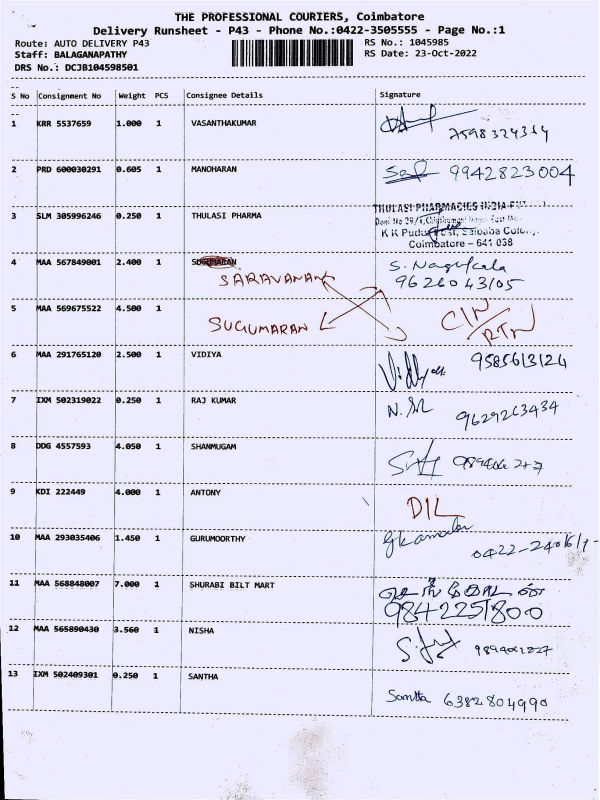 THE PROFESSIONAL COURIERS, Coimbatore
Delivery Runsheet - P43 - Phone No.:0422-3505555 - Page No.:1
Route: AUTO DELIVERY P43 RS No.: 1045985
Staff: BALAGANAPATHY RS Date: 23-Oct-2022
DRS No.: DCJB104598501
S No Consignment No Weight PCS Consignee Details Signature
1 KRR 5537659 1.000 1 VASANTHAKUMAR
7598324314
2 PRD 600030291 0.605 1 MANOHARAN 9942823004
THULASI PHARMACIES INDIA
3 SLM 305996246 0.250 1 THULASI PHARMA
Coimbatore - 641 038
4 MAA 567849001 2.400 1 SUGUMARAN
SARAVANAN 9626043105
5 MAA 569675522 4.500 1
SUGUMARAN CIN/RTN
6 MAA 291765120 2.500 1 VIDIYA 9585613124
7 IXM 502319022 0.250 1 RAJ KUMAR 9629263434
8 DDG 4557593 4.050 1 SHANMUGAM
9 KDI 222449 4.000 1 ANTONY D/L
10 MAA 293035406 1.450 1 GURUMOORTHY
11 MAA 568848007 7.000 1 SHURABI BILT MART
9842251800
12 MAA 565890430 3.560 1 NISHA
13 IXM 502409301 0.250 1 SANTHA Santha 6382804990